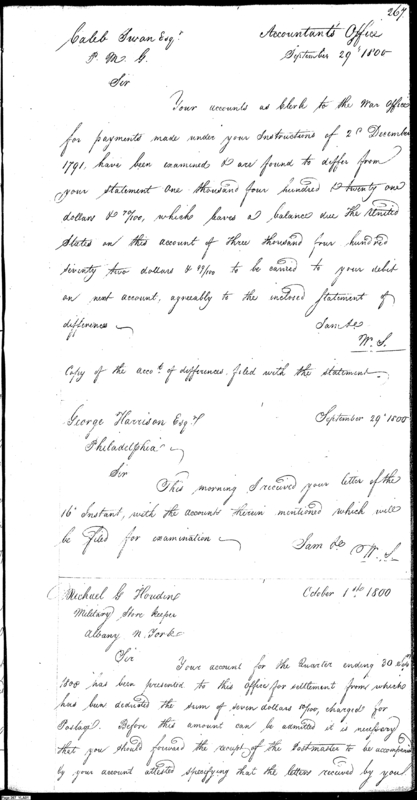 267.
Caleb Swan Esqr. Accountants Office
P. M. G. September 29th 1800
Sir
Your accounts as Clerk to the War Office
for payments made under your Instructions of 2d December
1791, have been examined & are found to differ from
your statement one thousand four hundred & twenty one
dollars & 70/100, which leaves a balance due the United
States on this account of three thousand four hundred
seventy two dollars & /100 to be carried to your debit
on next account, agreeably to the inclosed statement of
differences
I am &c
W. S.
Copy of the accot. of differences filed with the statement.
George Harrison Esqr September 29th 1800
Philadelphia
Sir
This morning I received your letter of the
16th Instant, with the accounts therein mentioned which will
be filed for examination
I am &c W. S.
Michael G Houdin October 1st 1800
Military Store keeper
Albany N. York
Sir
Your account for the Quarter ending 30 Sept
1800 has been presented to this Office for settlement from which
has been deducted the sum of seven dollars /100, charged for
Postage. Before this amount can be admitted it is necessary
that you should forward the receipt of the Postmaster to be accompanied
by your account attested specifying that the letters received by you